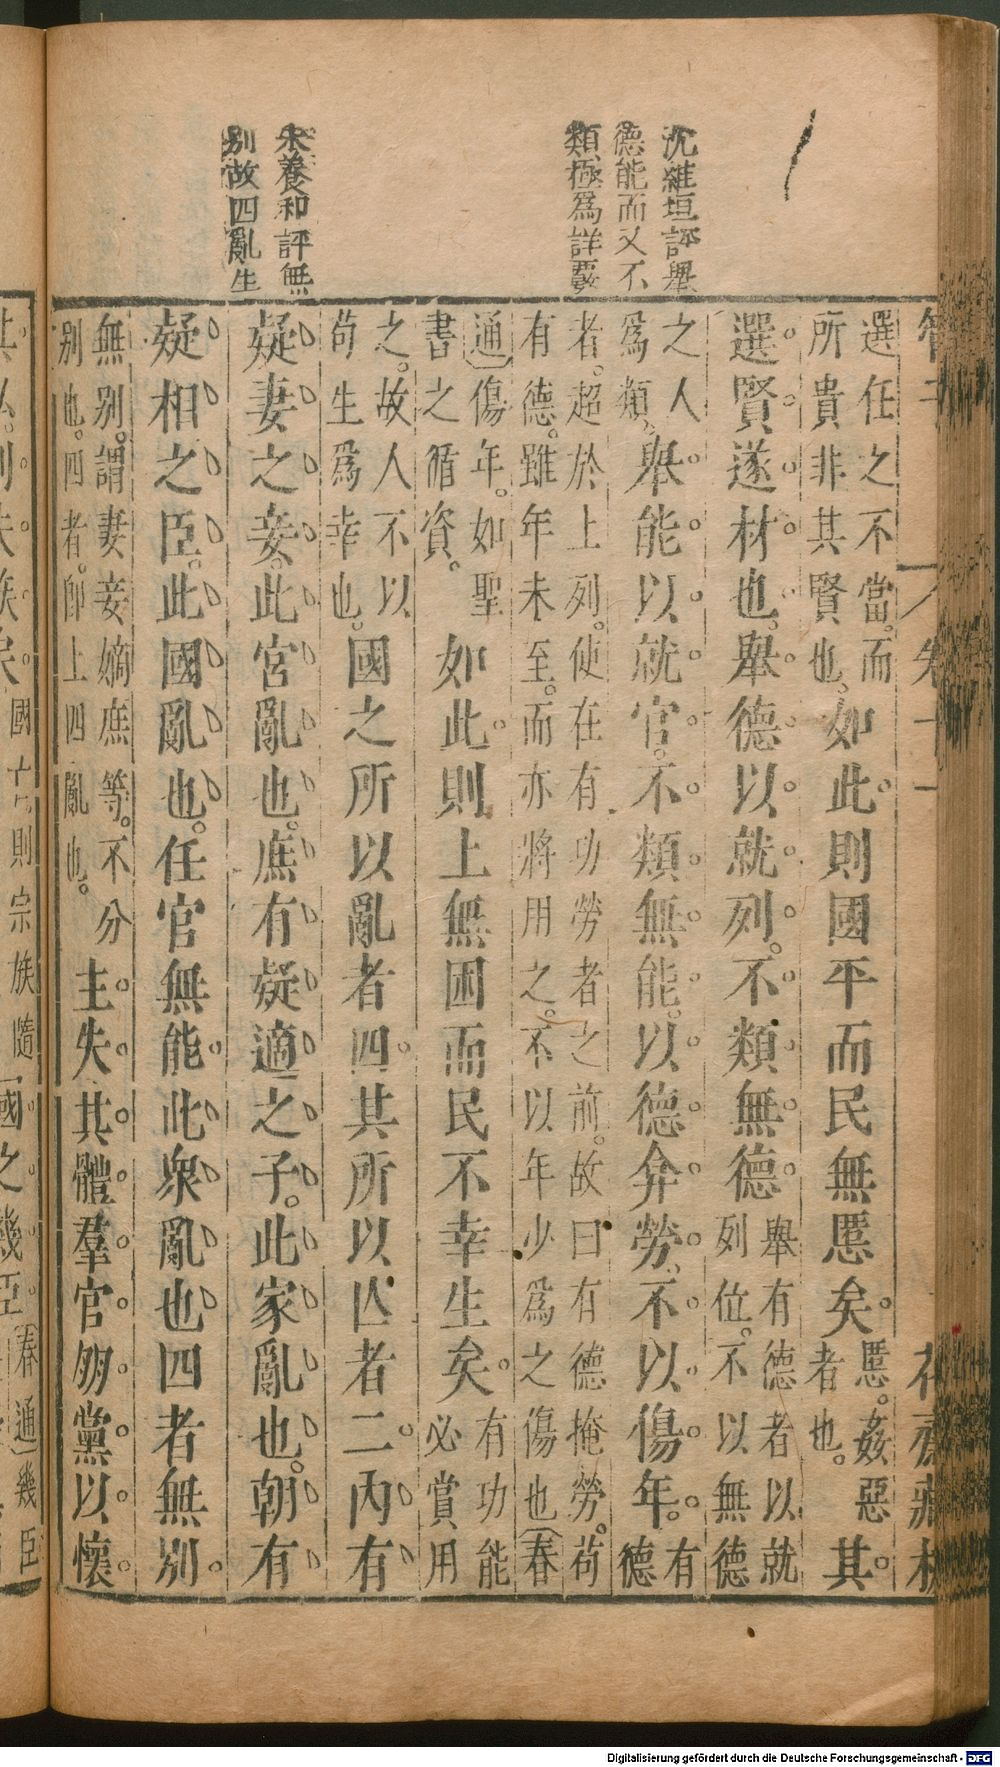 沈維垣評舉
德能而又不
類極爲詳覈
朱養和評無
別故四亂生
管子 卷十一 花齋藏板
選任之不當。而所貴非其賢也。如此。則國平而民無慝矣。慝。姦惡者也。其
選賢遂材也。舉德以就列。不類無德舉有德者以就列位。不以無德
之人爲類、舉能以就官。不類無能。以德弇勞、不以傷年。有德
者。超於上列。使在有功勞者之前。故曰有德掩勞。苟有德。雖年未至。而亦將用之。不以年少爲之傷也(春
通)傷年。如聖書之循資。如此。則上無困而民不幸生矣。有功能必賞用
之。故人不以苟生爲幸也。國之所以亂者四。其所以亾者二。內有
疑妻之妾。此宮亂也。庶有疑適之子。此家亂也。朝有
疑相之臣。此國亂也。任官無能。此衆亂也。四者無別。
無別。謂妻妾嫡庶等。不分別也。四者。卽上四亂也。主失其體。羣官朋黨。以懷
其私。則失族矣。國亡則宗族隨 國之幾臣(春通)幾臣
Digitalisierung gefördert durch die Deutsche Forschungsgemeinschaft - DFG